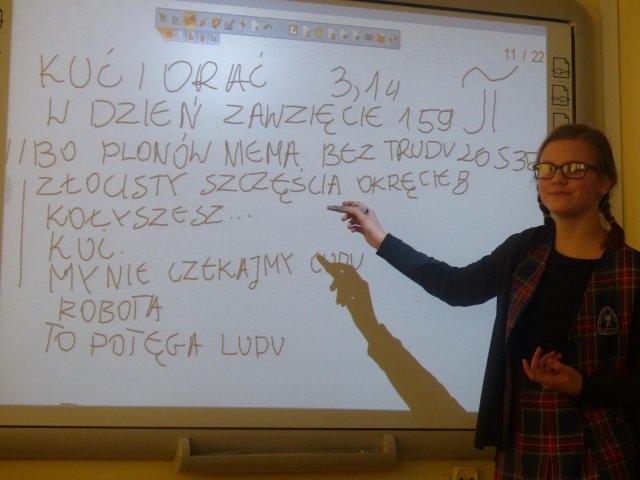 11 / 22
KUĆ I ORAĆ 3,14 π
W DZIEŃ ZAWZIĘCIE 159
BO PLONÓW NEMA BEZ TRUDU 26535
ZŁOCISTY SZCZĘŚCIA OKRĘCIE 8
KOŁYSZESZ...
KUĆ.
MY NIE CZEKAJMY CUDU
ROBOTA
TO POTĘGA LUDU